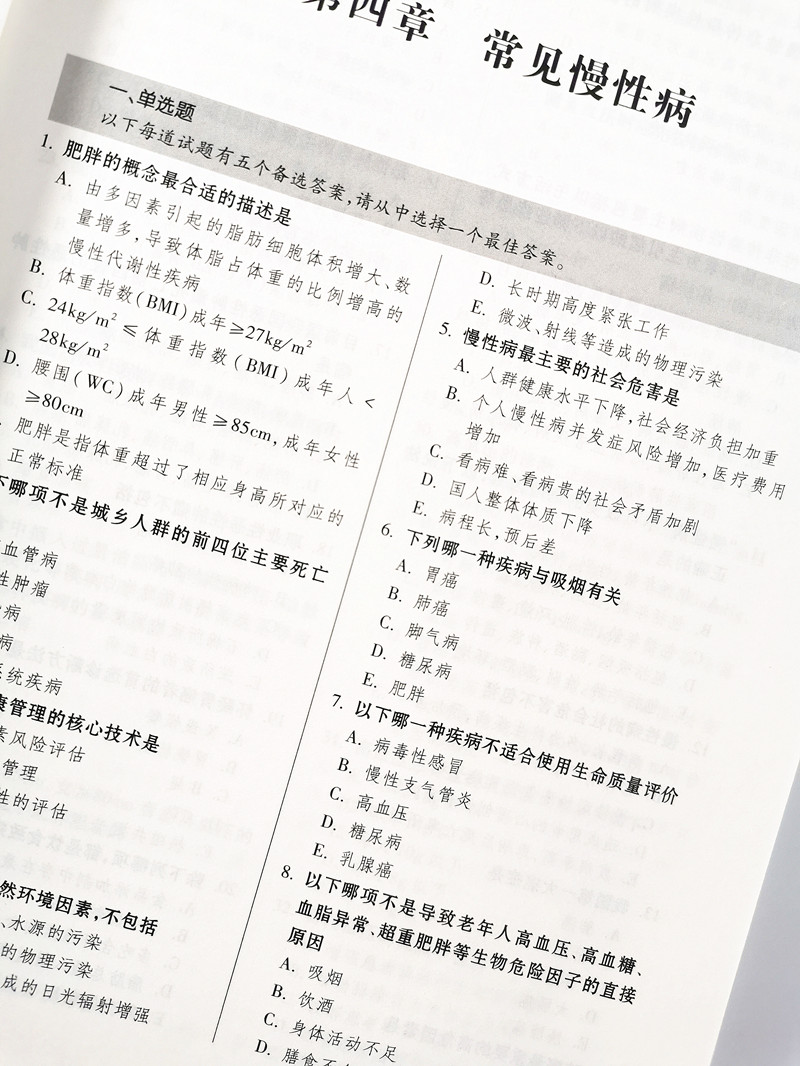 第四章 常见慢性病
一、单选题
以下每道试题有五个备选答案,请从中选择一个最佳答案。
1. 肥胖的概念最合适的描述是
A. 由多因素引起的脂肪细胞体积增大、数
量增多,导致体脂占体重的比例增高的
慢性代谢性疾病
B. 体重指数(BMI)成年≥27kg/m²
C. 24kg/m²≤体重指数(BMI)成年人<
28kg/m²
D. 腰围(WC)成年男性≥85cm,成年女性
≥80cm
肥胖是指体重超过了相应身高所对应的
正常标准
下哪项不是城乡人群的前四位主要死亡
血管病
性肿瘤
病
病
系统疾病
康管理的核心技术是
素风险评估
管理
性的评估
然环境因素,不包括
、水源的污染
的物理污染
成的日光辐射增强
D. 长时期高度紧张工作
E. 微波、射线等造成的物理污染
5. 慢性病最主要的社会危害是
A. 人群健康水平下降,社会经济负担加重
B. 个人慢性病并发症风险增加,医疗费用
增加
C. 看病难、看病贵的社会矛盾加剧
D. 国人整体体质下降
E. 病程长,预后差
6. 下列哪一种疾病与吸烟有关
A. 胃癌
B. 肺癌
C. 脚气病
D. 糖尿病
E. 肥胖
7. 以下哪一种疾病不适合使用生命质量评价
A. 病毒性感冒
B. 慢性支气管炎
C. 高血压
D. 糖尿病
E. 乳腺癌
8. 以下哪项不是导致老年人高血压、高血糖、
血脂异常、超重肥胖等生物危险因子的直接
原因
A. 吸烟
B. 饮酒
C. 身体活动不足
D. 膳食不